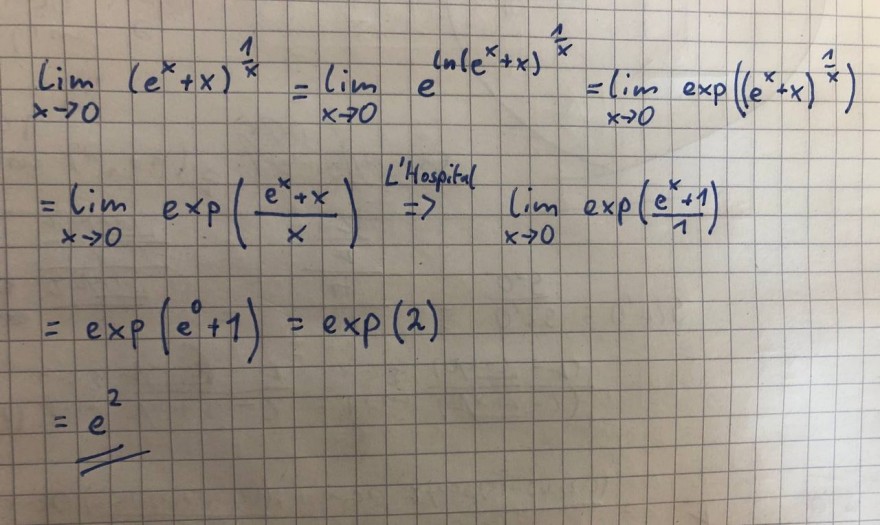 lim x→0 (e^x+x)^(1/x) = lim x→0 e^(ln(e^x+x)^(1/x)) = lim x→0 exp((e^x+x)^(1/x))
= lim x→0 exp((e^x+x)/x) L'Hospital => lim x→0 exp((e^x+1)/1)
= exp(e^0+1) = exp(2)
= e^2